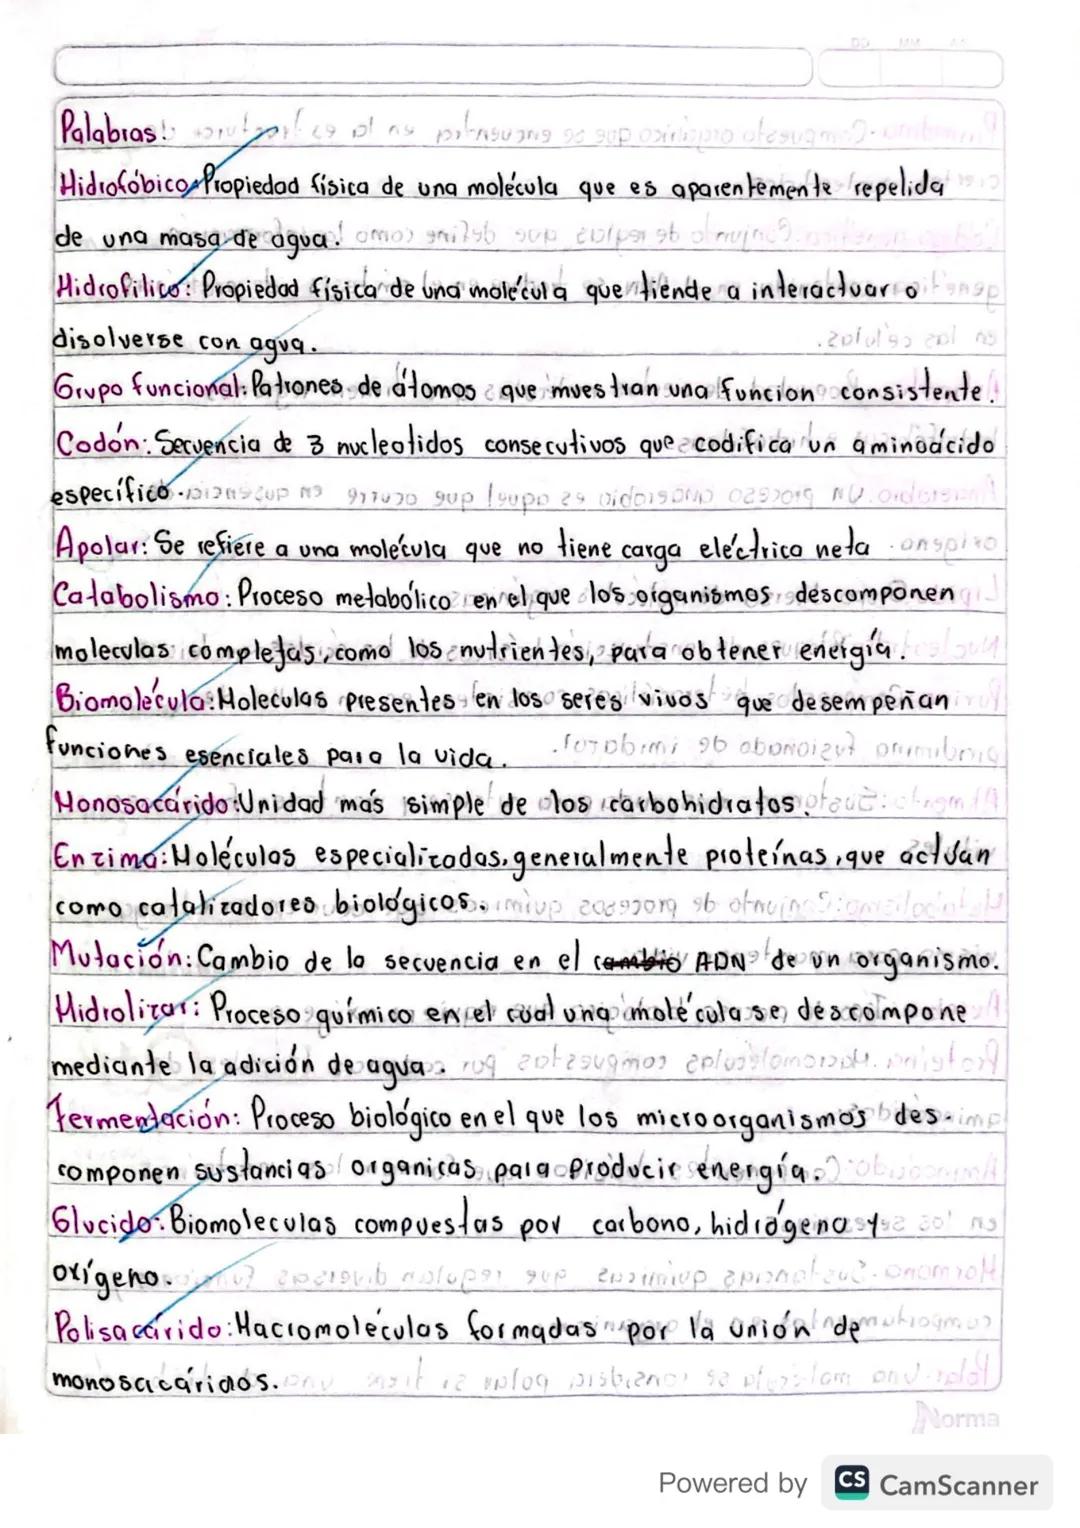 Palabras:
Hidrofóbico: Propiedad física de una molécula que es aparentemente repelida
de una masa de agua.
Hidrofilico: Propiedad física de una molécula que tiende a interactuar o
disolverse con agua.
Grupo funcional: Patrones de átomos que muestran una función consistente.
Codón: Secuencia de 3 nucleotidos consecutivos que codifica un aminoácido
específico.
Apolar: Se refiere a una molécula que no tiene carga eléctrica neta
Catabolismo: Proceso metabólico en el que los organismos descomponen
moleculas complejas, como los nutrientes, para obtener energía.
Biomolécula: Moleculas presentes en los seres vivos que desempeñan
funciones esenciales para la vida.
Monosacárido: Unidad más simple de los carbohidratos.
Enzima: Moléculas especializadas, generalmente proteínas, que actúan
como catalizadores biológicos.
Mutación: Cambio de la secuencia en el cambio ADN de un organismo.
Hidrolizar: Proceso químico en el cual una molécula se descompone
mediante la adición de agua.
Fermentación: Proceso biológico en el que los microorganismos des-
componen sustancias organicas para producir energía.
Glucido: Biomoleculas compuestas por carbono, hidrógeno y
oxígeno.
Polisacárido: Macromoléculas formadas por la unión de
monosacáridos.
Norma
Powered by CS CamScanner